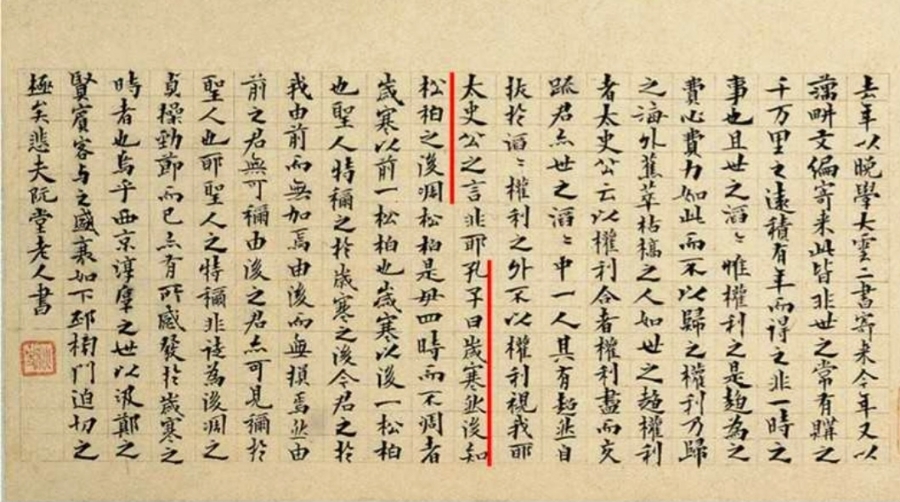 去年以晚學大雲二書寄来今年又以
藕畊文編寄来此皆非世之常有購之
千万里之遠積有年而得之非一時之
事也且世之滔〻惟權利之是趨為之
費心費力如此而不以歸之權利乃歸
之海外蕉萃枯槁之人如世之趨權利
者太史公云以權利合者權利盡而交
踈君亦世之滔〻中一人其有超然自
拔於滔〻權利之外不以權利視我耶
太史公之言非耶孔子曰歲寒然後知
松柏之後凋松柏是毋四時而不凋者
歲寒以前一松柏也歲寒以後一松柏
也聖人特稱之於歲寒之後今君之於
我由前而無加焉由後而無損焉然由
前之君無可稱由後之君亦可見稱於
聖人也耶聖人之特稱非徒為後凋之
貞操勁節而已亦有所感發於歲寒之
時者也烏乎西京淳厚之世以汲鄭之
賢賓客与之盛衰如下邳榜門迫切之
極矣悲夫阮堂老人書